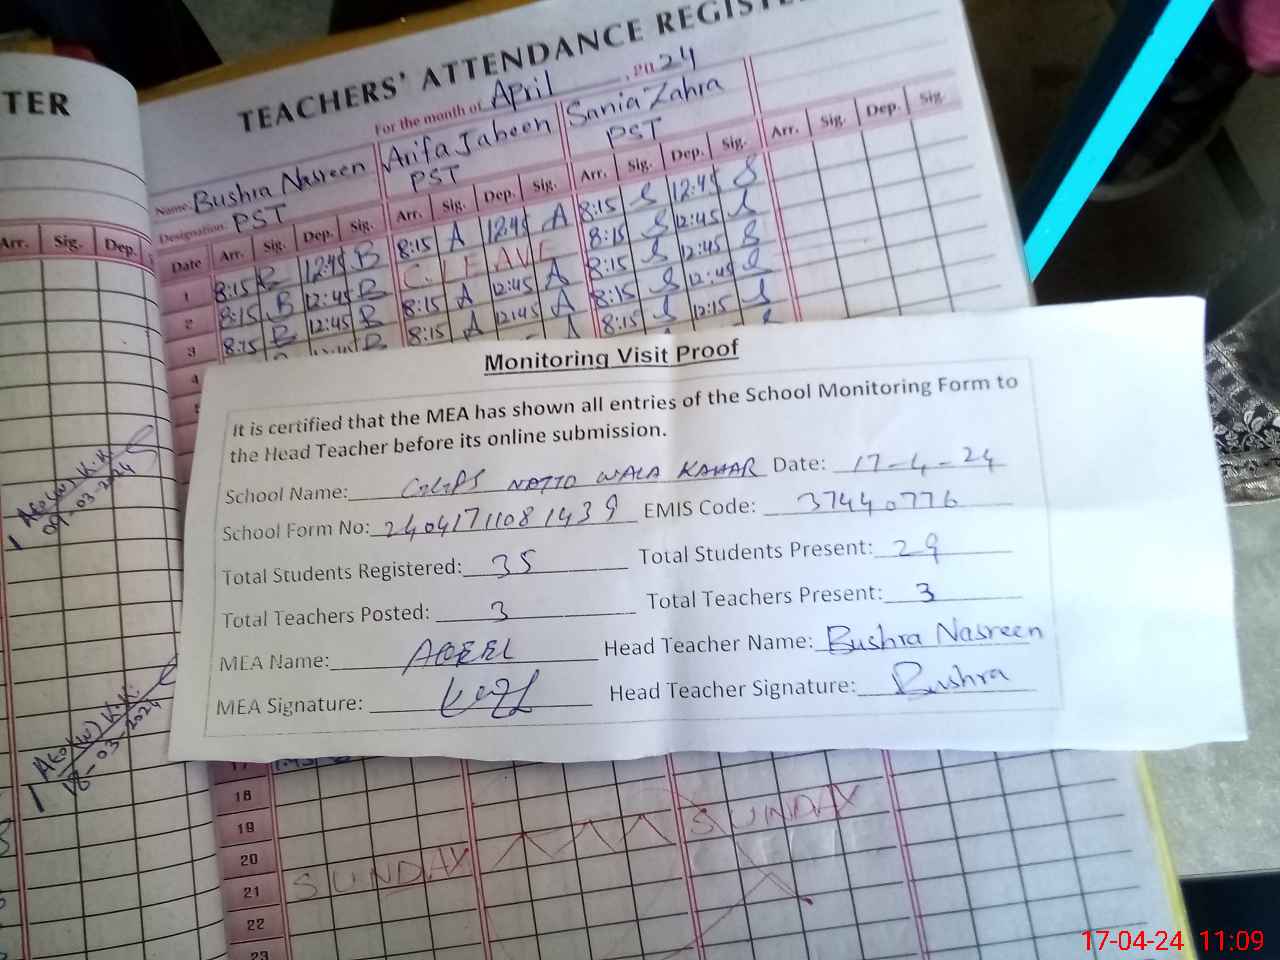 TER
Arr. Sig. Dep.
09-03-2024
18-03-2024
TEACHERS' ATTENDANCE REGISTE
For the month of April, 2024
Name Bushra Nasreen Arifa Jabeen Sania Zahra
Designation PST PST PST
Date Arr. Sig. Dep. Sig. Arr. Sig. Dep. Sig. Arr. Sig. Dep. Sig. Arr. Sig. Dep. Sig.
1 8:15 B 12:45 B 8:15 A 12:45 A 8:15 S 12:45 S
2 8:15 B 12:45 B C. LEAVE 8:15 S 12:45 S
3 8:15 B 12:45 B 8:15 A 12:45 A 8:15 S 12:45 S
4 8:15 A 12:45 A 8:15 S 12:45 S
8:15 S 12:15 S
Monitoring Visit Proof
It is certified that the MEA has shown all entries of the School Monitoring Form to
the Head Teacher before its online submission.
School Name: GGPS NATTO WALA KAHAR Date: 17-4-24
School Form No: 24041711081439 EMIS Code: 37440776
Total Students Registered: 35 Total Students Present: 29
Total Teachers Posted: 3 Total Teachers Present: 3
MEA Name: AQEEL Head Teacher Name: Bushra Nasreen
MEA Signature: Head Teacher Signature: Bushra
17
18
19
20
21 SUNDAY SUNDAY
22
23
17-04-24 11:09